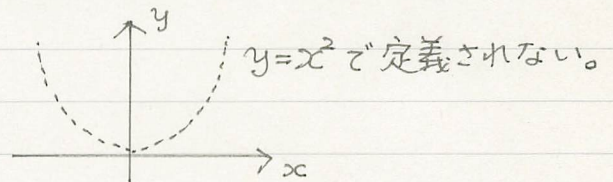 y
y=x²で定義されない。
x